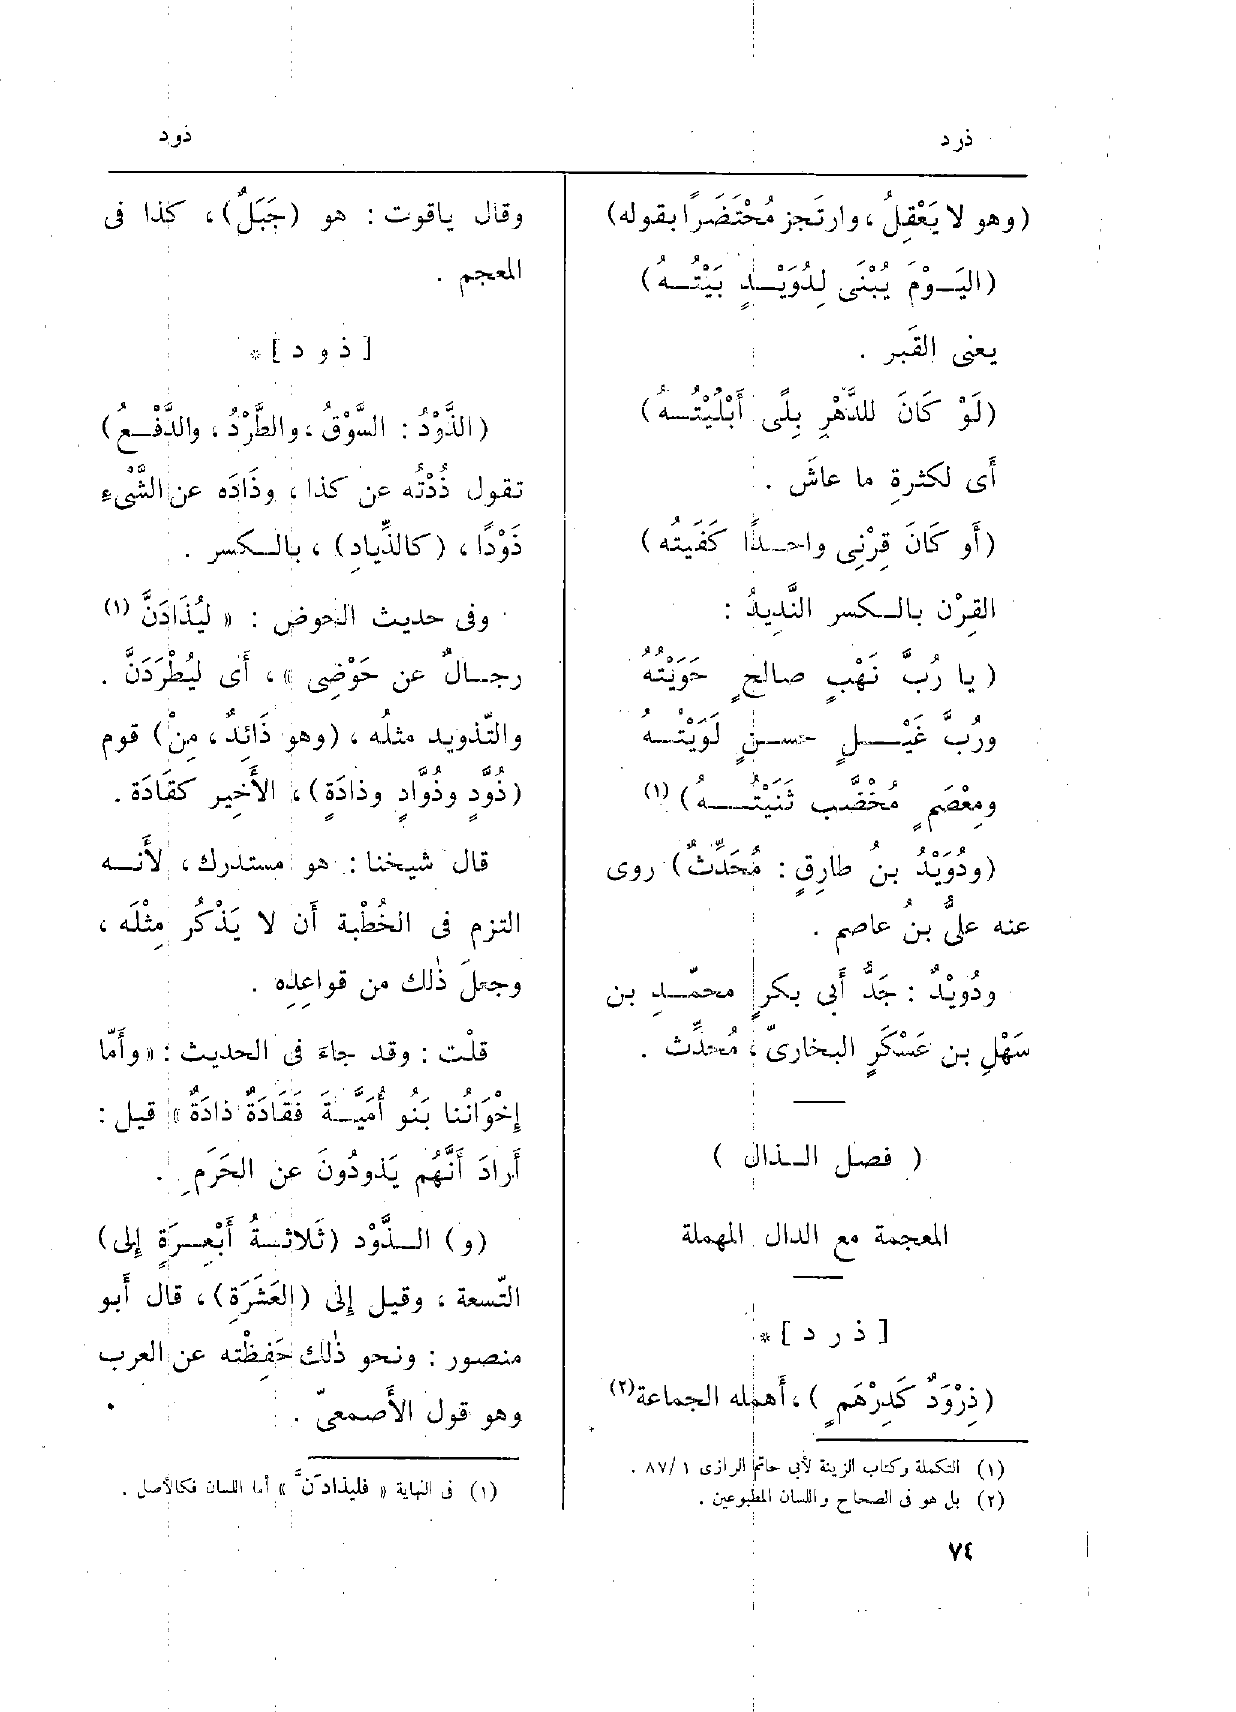 ذرد
ذود
(وهو لا يَعْقِلُ، وارتَجز مُحْتَضَرًا بقوله)
(اليَـوْمَ يُبْنَى لِدُوَيْـدٍ بَيْتُـهُ)
يعنى القَبر .
(لَوْ كَانَ للدَّهْرِ بِلًى أَبْلَيْتُـهُ)
أَى لكثرةِ ما عاشَ .
(أَو كَانَ قِرْنِى واحـدًا كَفَيتُه)
القِرْن بالـكسر النَّدِيدُ :
( يا رُبَّ نَهْبٍ صالحٍ حَوَيْتُهُ
ورُبَّ غَيْـلٍ حسـنٍ لَوَيْتُـهُ
ومِعْصَمٍ مُخَضَّبٍ ثَنَيْتُـهُ) (١)
(ودُوَيْدُ بنُ طارِقٍ : مُحَدِّثٌ) روى
عنه علىُّ بنُ عاصِم .
ودُويْدٌ : جَدُّ أَبى بكرٍ محمّـدِ بن
سَهْلِ بن عَسْكَرٍ البخارىّ، مُحدِّث .
( فصل الـذال )
المعجمة مع الدال المهملة
[ ذ ر د ] *
(ذِرْوَدٌ كَدِرْهَمٍ )، أَهمله الجماعة(٢)
(١) التكملة وكتاب الزينة لأبى حاتم الرازى ١ /٨٧ .
(٢) بل هو فى الصحاح واللسان المطبوعين .
وقال ياقوت : هو (جَبَلٌ)، كذا فى
المعجم .
[ ذ و د ] *
(الذَّوْدُ : السَّوْقُ، والطَّرْدُ، والدَّفْـعُ)
تقول ذُدْتُه عن كذا، وذَادَه عن الشَّىْءِ
ذَوْدًا، (كالذِّيادِ)، بالـكسر .
وفى حديث الحوض : « لَيُذَادَنَّ (١)
رجـالٌ عن حَوْضِى »، أَى لَيُطْرَدَنَّ .
والتَّذويد مثلُه، (وهو ذَائِدٌ، مِنْ) قوم
(ذُوَّدٍ وذُوَّادٍ وذادَةٍ)، الأَخير كقَادَة .
قال شيخنا : هو مستدرك، لأَنـه
التزم فى الخُطْبة أَن لا يَذْكُر مِثْلَه،
وجعلَ ذٰلك من قواعِدِه .
قلْت : وقد جاءَ فى الحديث : «وأَمّا
إِخْوَانُنا بَنُو أُمَيَّـةَ فَقَادَةٌ ذادَةٌ» قيل :
أَرادَ أَنَّهُم يَذودُونَ عن الحَرَمِ .
(و) الـذَّوْد (ثَلاثـةُ أَبْعِـرَةٍ إِلى)
التّسعة، وقيل إِلى (العَشَرَةِ)، قال أَبو
منصور : ونحو ذٰلك حَفِظْته عن العرب
وهو قول الأَصمعىّ .
(١) فى النهاية « فليذادَنَّ » أما اللسان فكالأصل .
٧٤